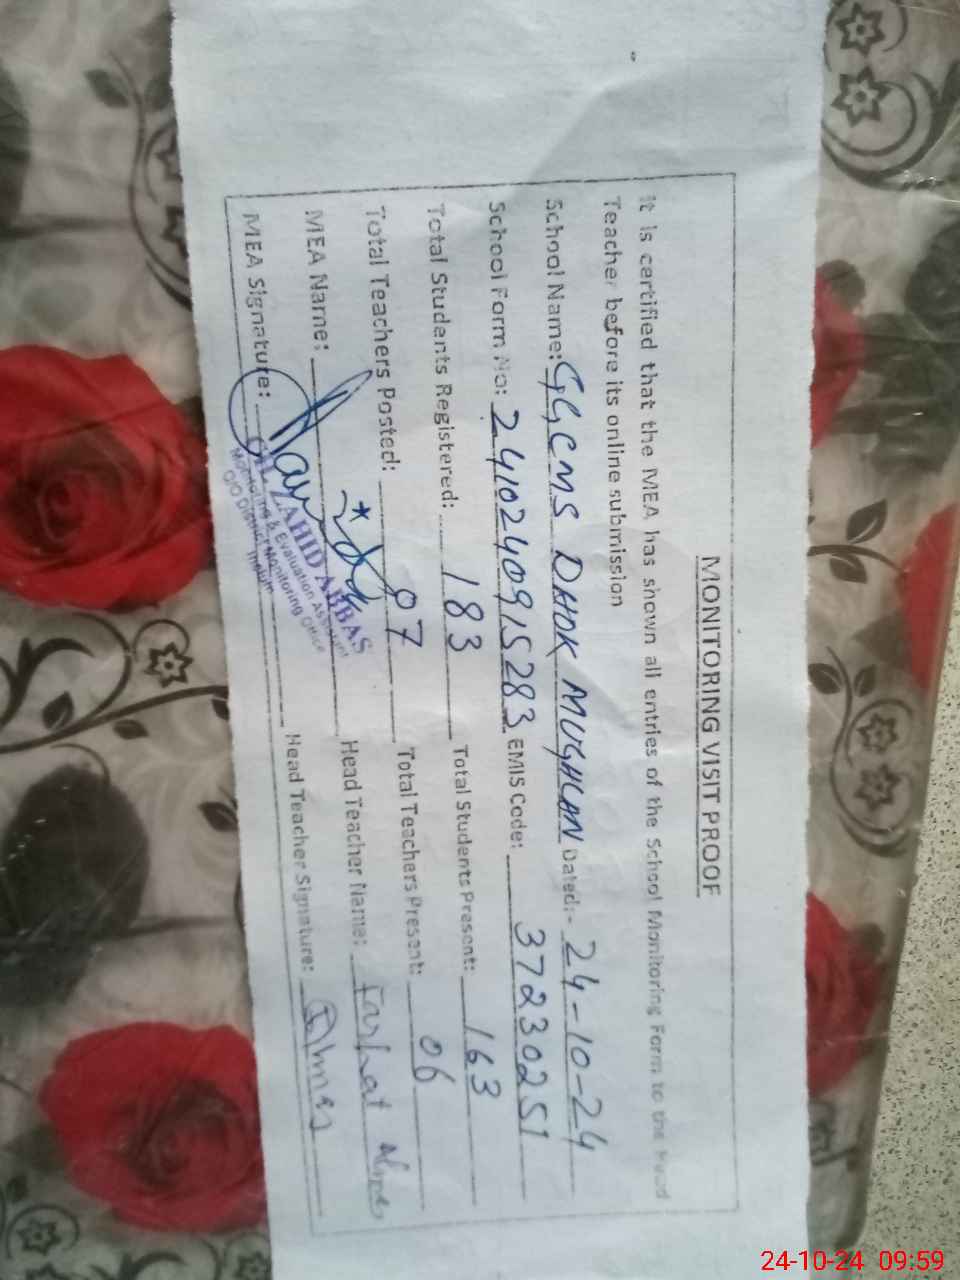 MONITORING VISIT PROOF
It is certified that the MEA has shown all entries of the School Monitoring Form to the Head
Teacher before its online submission
School Name: GGCMS DHOK MUGHLAN Dated:- 24-10-24
School Form No: 2410240915283 EMIS Code: 37230251
Total Students Registered: 183 Total Students Present: 163
Total Teachers Posted: 07 Total Teachers Present: 06
MEA Name: Head Teacher Name: Farhat
MEA Signature: Head Teacher Signature:
ZAHID ABBAS
Monitoring & Evaluation Assistant
O/O District Monitoring Office
Jhelum
24-10-24 09:59